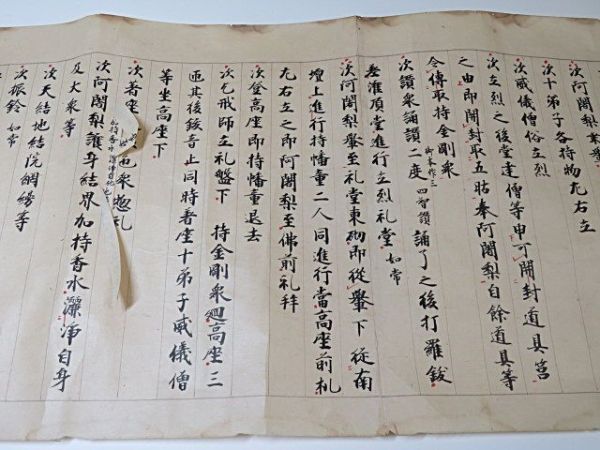 次阿闍梨
次十弟子各持物左右立
次威儀僧俗立烈
次立烈之後堂達僧等申可開封道具筥
之由即開封取五鈷奉阿闍梨自餘道具等
令傳取持金剛衆
次讃衆誦讃二度 四智讃 誦了之後打羅鈸
参准頂堂進行立烈礼堂 如常
次阿闍梨轝至礼堂東砌即從轝下從南
壇上進行持幡童二人同進行當高座前札
左右立之即阿闍梨至佛前礼拜
次登高座即持幡童退去
次乞戒師立礼盤下 持金剛衆廻高座三
匝其後鈸音止同時着座十弟子威儀僧
等坐高座下
次着座 也衆惣礼
次阿闍梨護身結界加持香水灑淨自身
及大衆等
次天結地結院網縁等
次振鈴 如常